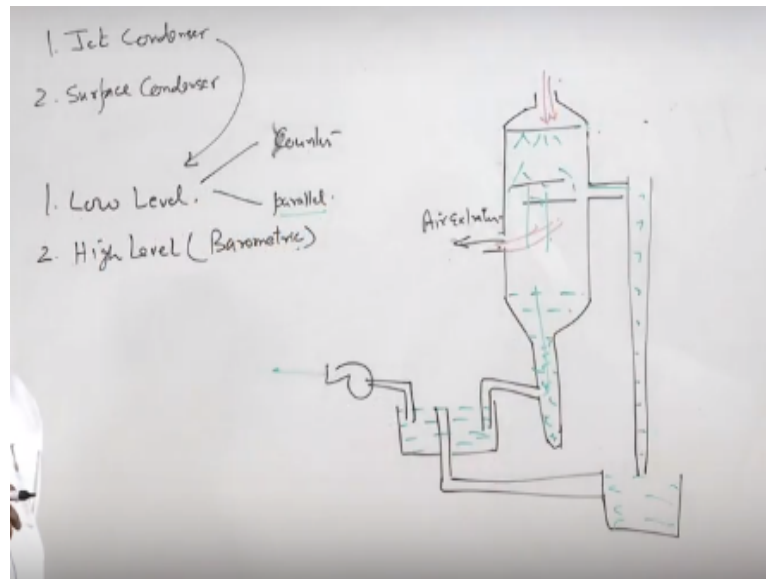 1. Jet Condenser
2. Surface Condenser
Counter
1. Low Level.
parallel.
2. High Level (Barometric)
Air Extraction